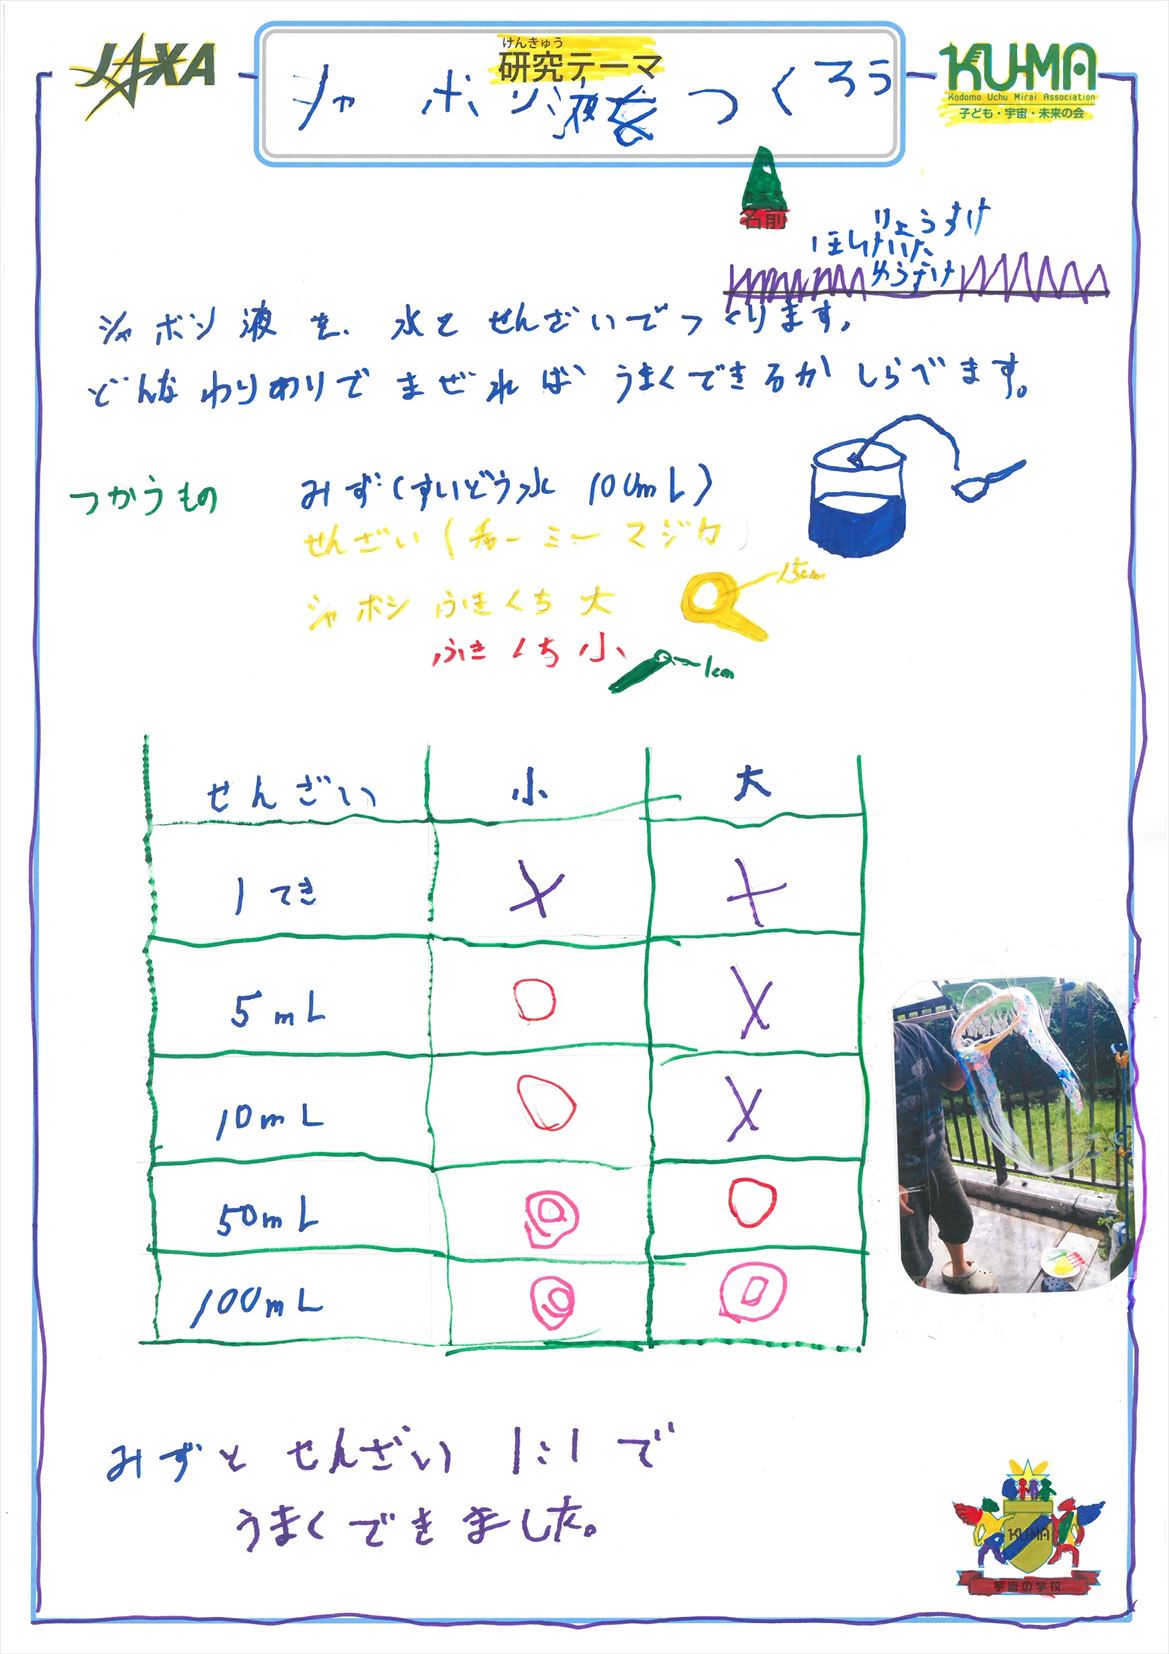 JAXA
けんきゅう
研究テーマ
シャボン液をつくろう
KU-MA
Kodomo Uchu Mirai Association
子ども・宇宙・未来の会
名前
りょうすけ
ゆうすけ
シャボン液を、水とせんざいでつくります。
どんなわりわりでまぜればうまくできるかしらべます。
つかうもの みず(すいどう水 100mL)
せんざい(チャーミーマジカ)
シャボン ふきくち 大
1.5cm
ふきくち 小
1cm
せんざい 小 大
1てき × ×
5mL ○ ×
10mL ○ ×
50mL ◎ ○
100mL ◎ ◎
みずと せんざい 1:1で
うまくできました。
KU-MA
宇宙の学校